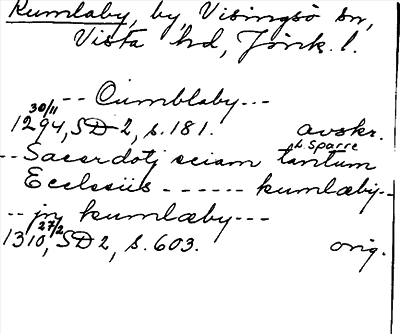 Kumlaby, by, Visingsö sn,
Vista hd, Jönk. l.
-- Cumblaby---
30/11
1294, SD 2, s. 181. avskr.
L. Sparre
-- Sacerdotj eciam tantum
Ecclesiis ------ kumlæby--
-- jn kumlæby---
27/2
1310, SD 2, s. 603. orig.